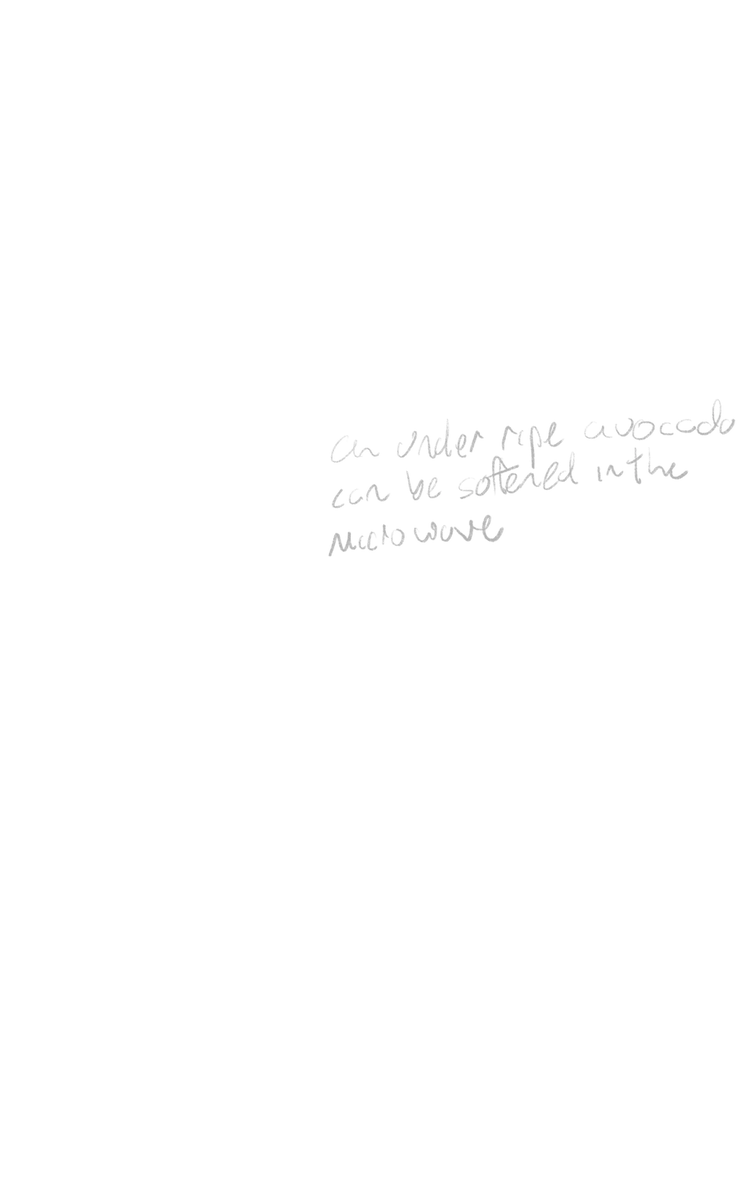 an under ripe avocado
can be softened in the
microwave